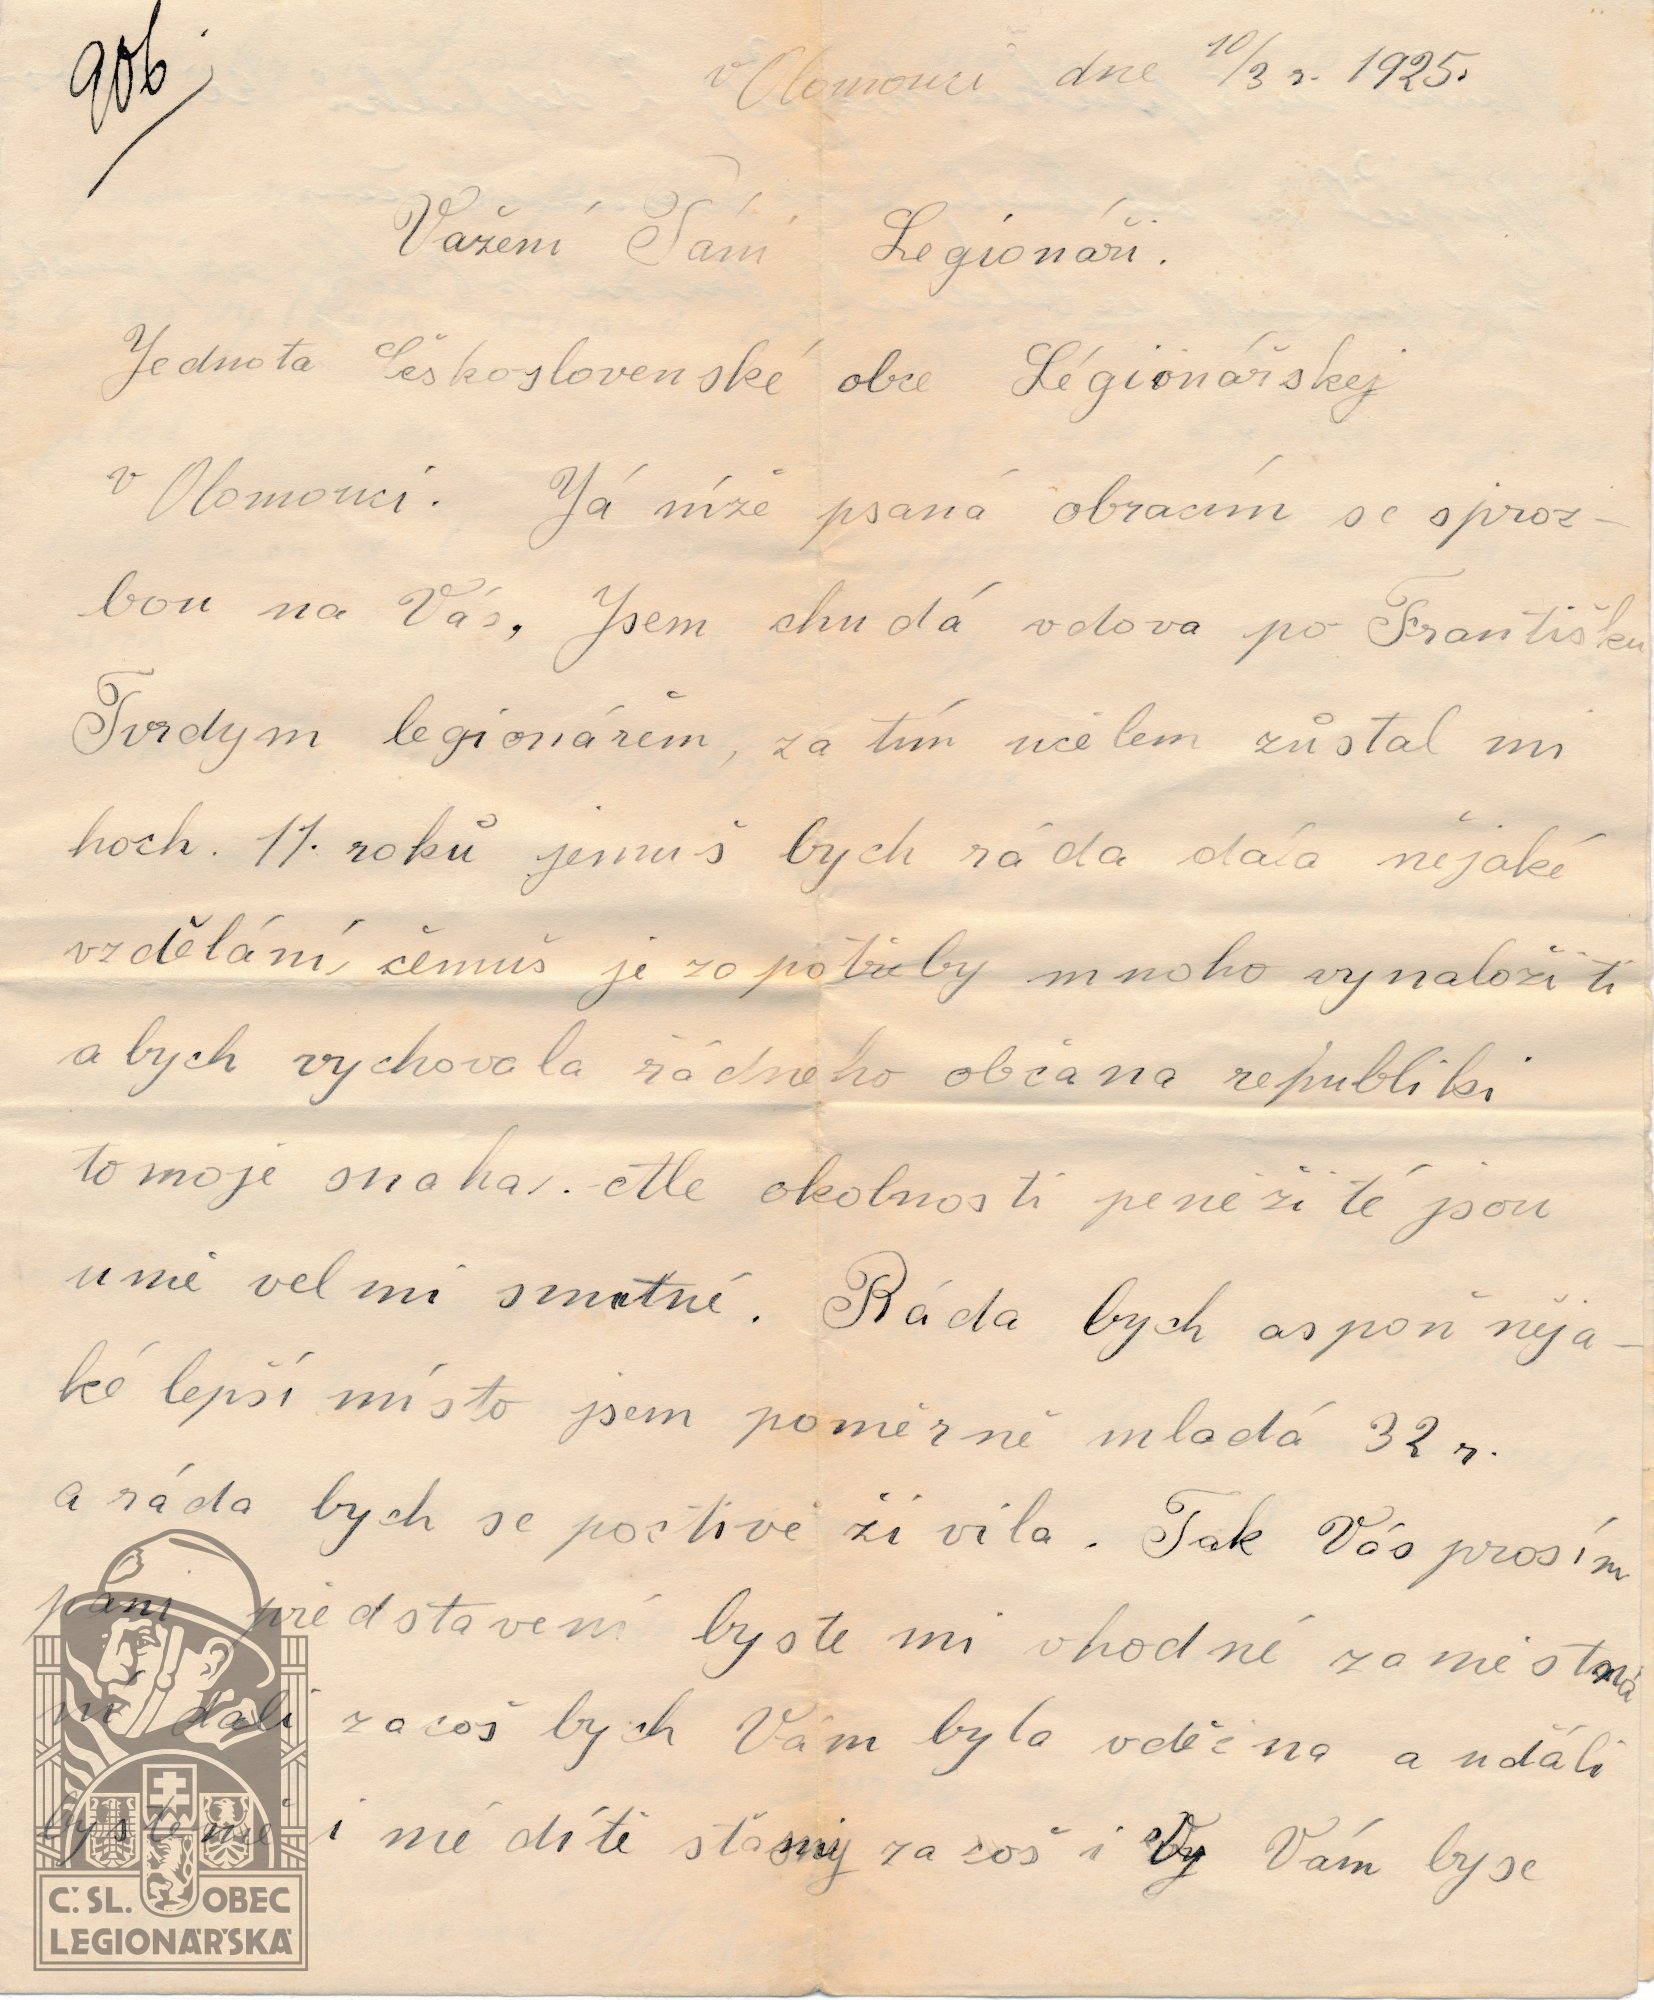 906.
v Olomouci dne 10/3 r. 1925.
Važení Páni Legionáři.
Jednota Československé obce Légionářskej
v Olomouci. Já níže psaná obracím se sproz-
bou na Vás, Jsem chudá vdova po Františku
Tvrdym legionářem, za tím učelem zůstal mi
hoch. 11. roků jemuš bych ráda dala nějaké
vzdělání, čemuš je zapotřeby mnoho vynaložiti
abych vychovala řádneho občana republiki
to moje snaha. Ale okolnosti peněžité jsou
umě velmi smutné. Ráda bych aspoň něja-
ké lepší místo jsem poměrně mladá 32 r.
a ráda bych se poctivě živila. Tak Vás prosím
páni představení byste mi vhodné zaměstná
ní dali začoš bych Vám byla vděčna a událi
byste mě i mé dítě začoš i Vám byse
C.SL. OBEC
LEGIONÁŘSKÁ